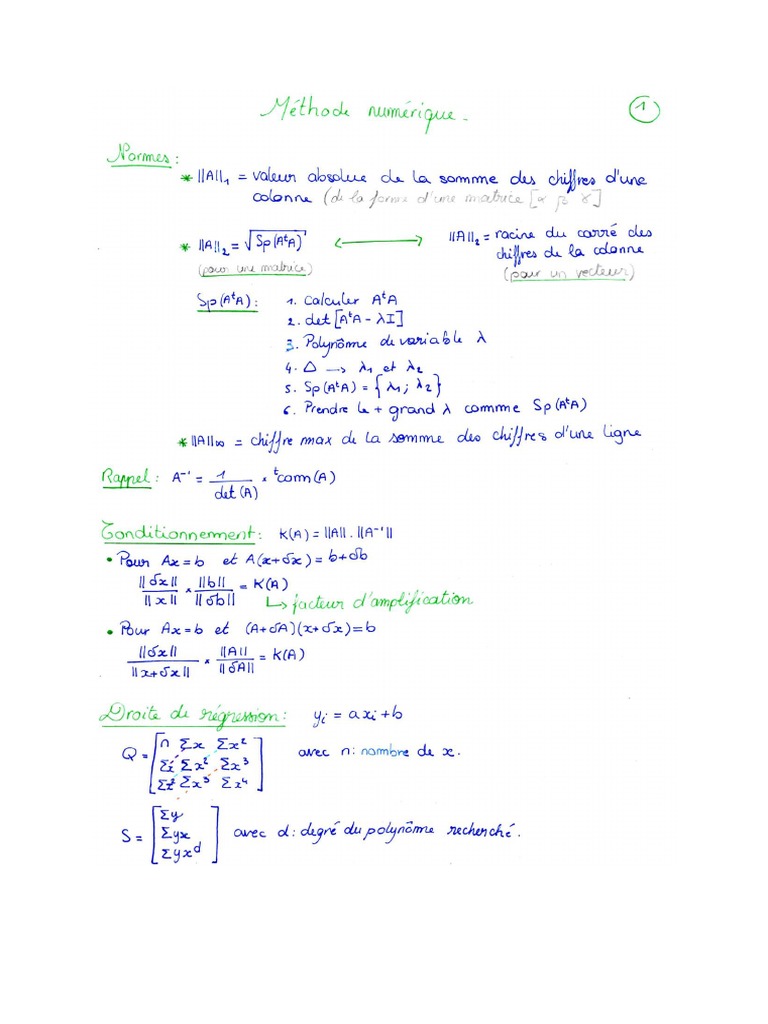 Méthode numérique.
1
Normes :
* ||A||₁ = valeur absolue de la somme des chiffres d'une
colonne (de la forme d'une matrice [α β γ]
* ||A||₂ = √Sp(AᵗA) ⟷ ||A||₂ = racine du carré des
chiffres de la colonne
(pour une matrice) (pour un vecteur)
Sp(AᵗA) : 1. Calculer AᵗA
2. det[AᵗA - λI]
3. Polynôme de variable λ
4. Δ → λ₁ et λ₂
5. Sp(AᵗA) = {λ₁ ; λ₂}
6. Prendre le + grand λ comme Sp(AᵗA)
* ||A||∞ = chiffre max de la somme des chiffres d'une ligne
Rappel : A⁻¹ = 1/det(A) × ᵗcom(A)
Conditionnement : K(A) = ||A|| . ||A⁻¹||
• Pour Ax = b et A(x+δx) = b+δb
||δx||/||x|| × ||b||/||δb|| = K(A)
↳ facteur d'amplification
• Pour Ax = b et (A+δA)(x+δx) = b
||δx||/||x+δx|| × ||A||/||δA|| = K(A)
Droite de régression : yᵢ = axᵢ + b
Q = [n Σx Σx²
Σx Σx² Σx³ avec n : nombre de x.
Σx² Σx³ Σx⁴]
S = [Σy
Σyx avec d : degré du polynôme recherché.
Σyxᵈ]